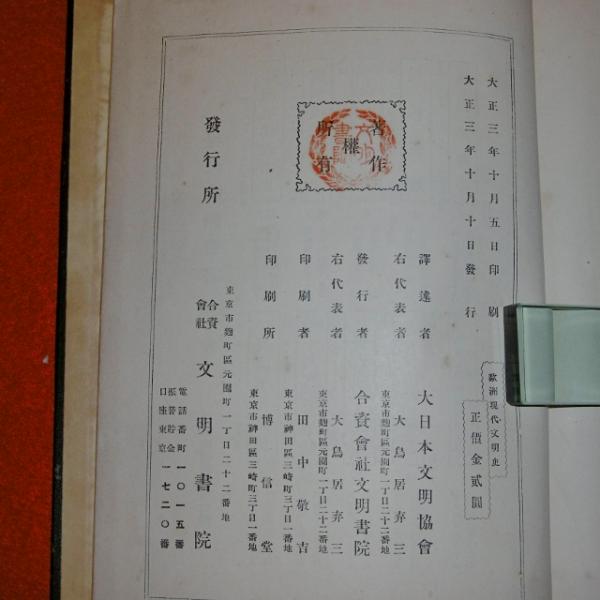 大正三年十月五日印刷
大正三年十月十日發行
歐洲現代文明史
正價金貳圓
著作
權
所有
譯述者 大日本文明協會
右代表者 大鳥居弃三
東京市麹町區元園町一丁目二十二番地
發行者 合資會社文明書院
右代表者 大鳥居弃三
東京市麹町區元園町一丁目二十二番地
印刷者 田中敬吉
東京市神田區三崎町三丁目一番地
印刷所 博信堂
東京市神田區三崎町三丁目一番地
發行所
東京市麹町區元園町一丁目二十二番地
合資會社 文明書院
電話番町一〇一五番
振替貯金口座東京一七二〇番